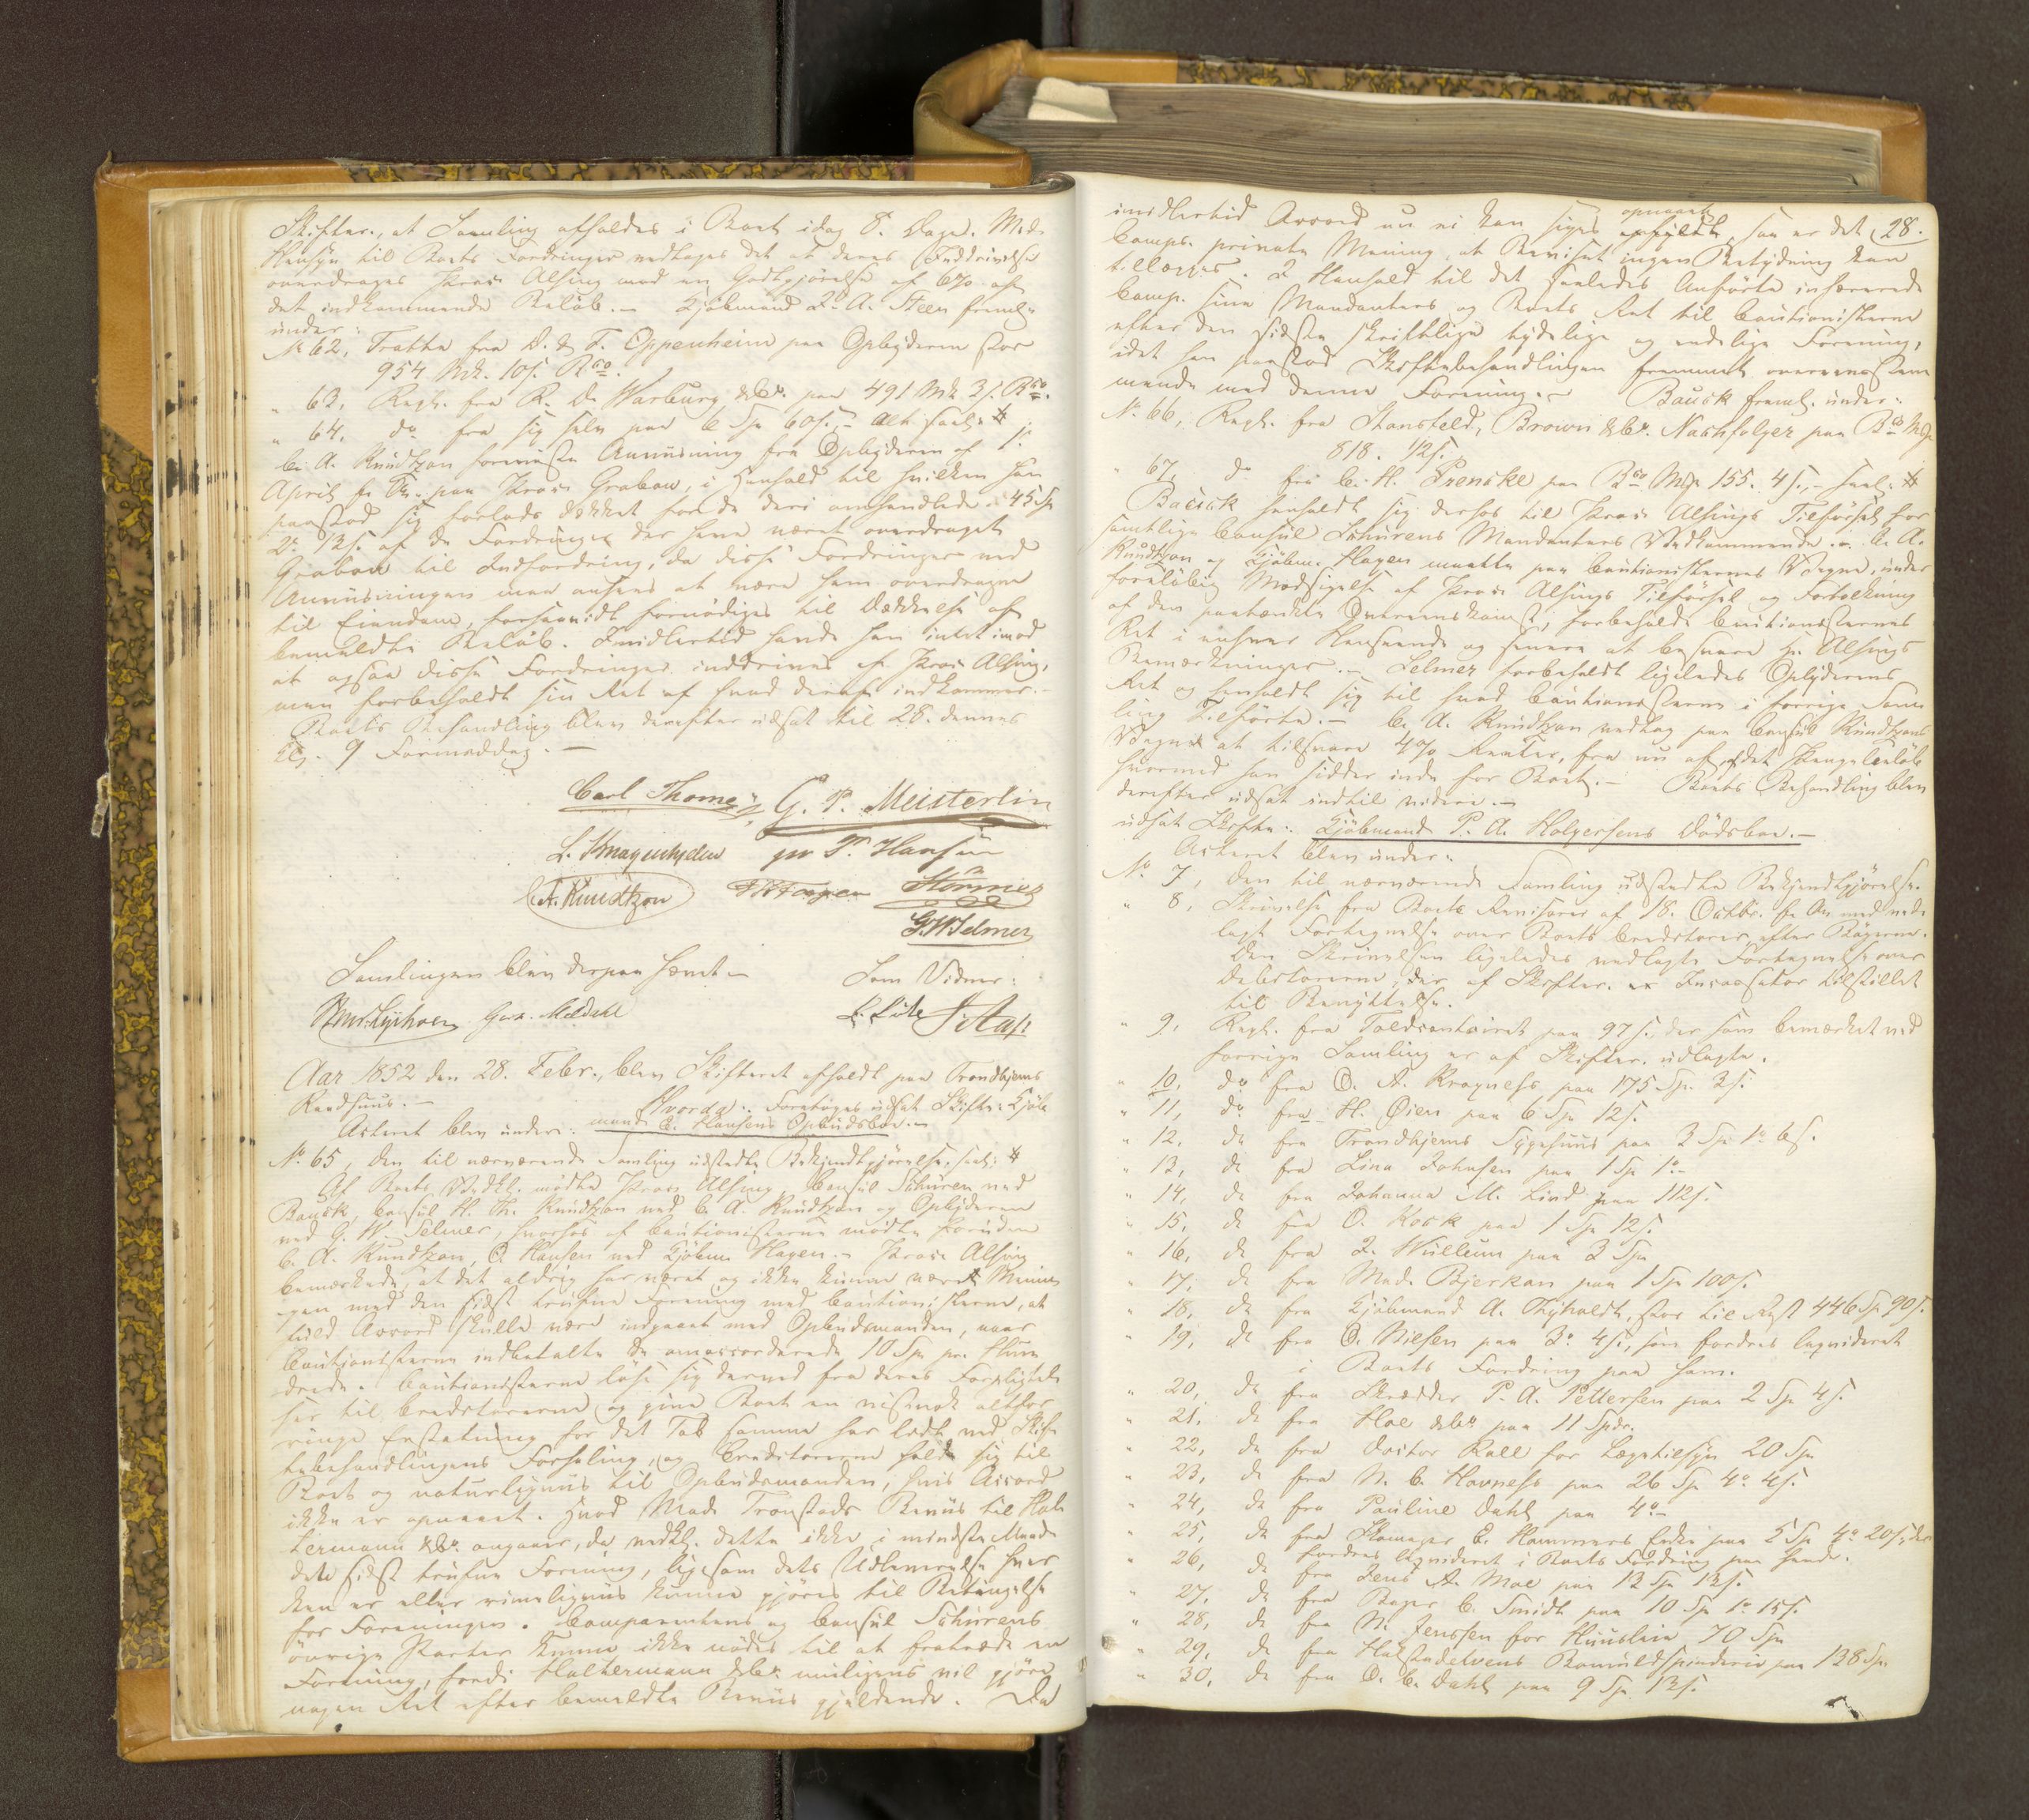 Skifter., at Samling afholdes i Boet idag 8. Dage. Med
Hensyn til Boets Fordringer vedtoges det at deres Inddrivelse
overdroges Proc: Alsing mod en Godtgjørelse af 6% af
det indkommende Beløb. – Kjøbmand A. Steen freml:
under:
No 62, Tratte fra D. & F. Oppenheim paa Opbyderen stor
954 Mk. 10 s. Bco.
" 63, Regn. fra R. D. Warburg &Co. paa 491 Mk 3 s. Bco.
" 64, do fra sig selv paa 6 Spd 60 s., – alt saal: #
C. A. Knudtzon foreviste Anviisning fra Opbyderen af 1.
April f. A. paa Proc: Grabow, i Henhold til hvilken han
paastod sig forlods dækket for de deri omhandlede 45 Sp
2. 12 s. af de Fordringer der have været overdraget
Grabow til Indfordring, da disse Fordringer ved
Anviisningen maa ansees at være ham overdragne
til Eiendom, forsaavidt fornødiges til Dækkelse af
bemeldte Beløb. Imidlertid havde han intet imod
at ogsaa disse Fordringer inddrives af Proc: Alsing,
men forbeholdt sin Ret af hvad deraf indkommer. –
Boets Behandling blev derefter udsat til 28. dennes
Kl. 9 Formiddag. –
Carl Thome G. P. Meisterlin
L. Smagenhyden pr P. Hansen
C. A. Knudtzon Hagen Størmer
G. W. Selmer
Samlingen blev derpaa hævet –
Som Vidner:
Aar 1852 den 28. Febr., blev Skifteret afholdt paa Trondhjems
Raadhuus. –
Hvorda: Foretages udsat Skifte: Kjøb-
Acteret blev under: mand C. Hansens Opbudsboe. –
No 65, den til nærværende Samling udstedte Bekjendtgjørelse, saal: #
Af Boets Vedk. mødte Proc: Alsing, Consul Schüren ved
Bauck, Consul H. Th. Knudtzon ved C. A. Knudtzon og Opbyderen
ved G. W. Selmer, hvorhos af Cautionisterne mødte foruden
C. A. Knudtzon, O Hansen ved Kjøbm. Hagen. – Proc: Alsing
bemærkede, at det aldrig har været og ikke kunne været Menin-
gen med den sidst trufne Forening med Cautionisterne, at
fuld Accord skulle være indgaaet med Opbudsmanden, naar
Cautionisterne indbetalte de omaccorderede 10 Spd pr. Hun-
drede. Cautionisterne løse sig derved fra deres Forpligtel-
ser til Creditorerne og give Boet en vistnok altfor
ringe Erstatning for det Tab samme har lidt ved Skif-
tebehandlingens Forhaling, og Creditorerne holde sig til
Boet og naturligviis til Opbudsmanden, hvis Accord
ikke er opnaaet. Hvad Mad. Tronstads Beviis til Hal-
termann &Co. angaaer, da vedk. dette ikke i mindste Maade
den sidst trufne Forening, ligesom dets Udleverelse hver-
ken er eller rimeligviis kunne gjøres til Betingelse
for Foreningen. Comparentens og Consul Schürens
øvrige Parter kunne ikke nødes til at fratræde en
Forening, fordi Haltermann &Co. muligens vil gjøre
nogen Ret efter bemeldte Beviis gjældende. Da
28.
imidlertid Accord nu ei kan siges opnaaet, saa er det
Comps. private Mening, at Beviset ingen Betydning kan
tillægges. I Henhold til det saaledes Anførte inhærerede
Comp. sine Mandanters og Boets Ret til Cautionisterne
efter den sidste skriftlige tydelige og endelige Forening,
idet han paastod Skiftebehandlingen fremmet overeensstem-
mende med denne Forening. – Bauck freml. under:
No 66, Regn. fra Stansfeld, Brown &Co. Nachfolger paa Bco Mk
818. 1/2 s.
" 67, do fra C. H. Prenske paa Bco Mk 155. 4 s., – saal: #
Bauck henholdt sig derhos til Proc: Alsings Tilførsel for
samtlige Consul Schürens Mandanters Vedkommende. – C. A.
Knudtzon og Kjøbm. Hagen maatte paa Cautionisternes Vegne, under
foreløbig Modsigelse af Proc: Alsings Tilførsel og Fortolkning
af den paatænkte Overeenskomst, forbeholde Cautionisternes
Ret i enhver Henseende og senere at besvare Hr. Alsings
Bemærkninger. – Selmer forbeholdt ligeledes Opbyderens
Ret og henholdt sig til hvad Cautionisterne i forrige Sam-
ling Tilførte. – C. A. Knudtzon vedtog paa Consul Knudtzons
Vegne at tilsvare 4% Renter, fra nu af, af det Pengebeløb
hvormed han sidder inde for Boet. – Boets Behandling blev
derefter udsat indtil videre. –
udsat Skifte: Kjøbmand P. A. Holgersens Dødsboe. –
Acteret blev under:
No 7, den til nærværende Samling udstedte Bekjendtgjørelse.
" 8, Skrivelse fra Boets Revisorer af 18. Octbr. f. A. med ved-
lagt Fortegnelse over Boets Creditorer efter Bøgerne.
Den Skrivelsen ligeledes vedlagte Fortegnelse over
Debitorerne, der af Skifter. er Incassator tilstillet
til Benyttelse.
" 9, Regn. fra Toldcontoiret paa 97 s., der som bemærket ved
forrige Samling er af Skifter. udlagte.
" 10, do fra O. A. Kragness paa 175 Sp. 3 s.
" 11, do fra H. Øien paa 6 Sp 12 s.
" 12, do fra Trondhjems Sygehuus paa 3 Sp 1. 6 s.
" 13, do fra Lina Johnsen paa 1 Sp 1. –
" 14, do fra Johanna M. Lind paa 112 s.
" 15, do fra O. Kock paa 1 Sp 12 s.
" 16, do fra J. Wullum paa 3 Sp
" 17, do fra Mad. Bjerkan paa 1 Sp 100 s.
" 18, do fra Kjøbmand A. Thyholdt, stor til Rest 446 Sp 90 s.
" 19, do fra O. Nielsen paa 3. 4 s., som fordres liqvideret
i Boets Fordring paa ham.
" 20, do fra Skrædder P. A. Pettersen paa 2 Sp 4 s.
" 21, do fra Hoe &Co. paa 11 Spdr.
" 22, do fra Doctor Rall for Lægetilsyn 20 Sp
" 23, do fra N. C. Havness paa 26 Sp 4. 4 s.
" 24, do fra Pauline Dahl paa 4. –
" 25, do fra Skomager C. Hammers Enke paa 5 Sp 4. 20 s., der
fordres liqvideret i Boets Fordring paa hende.
" 26, do fra Jens A. Moe paa 12 Sp 12 s.
" 27, do fra Bager C. Smidt paa 10 Sp 1. 15 s.
" 28, do fra N. Jenssen for Huusleie 70 Sp
" 29, do fra Halstadelvens Bomuldsspinderie paa 138 Sp.
" 30, do fra O. C. Dahl paa 9 Sp 12 s.